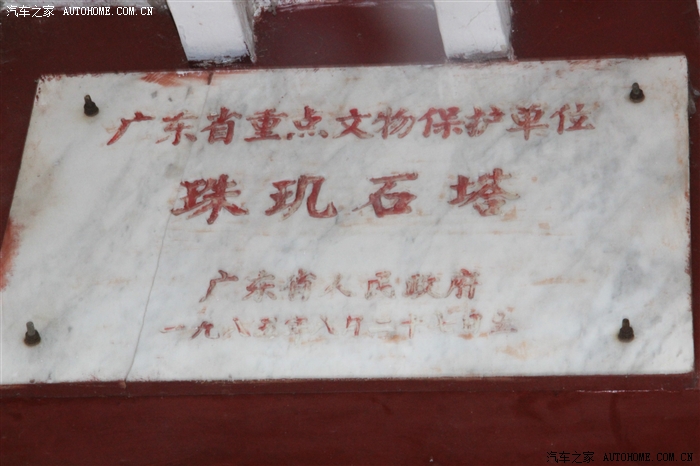 汽车之家 AUTOHOME.COM.CN
广东省重点文物保护单位
珠玑石塔
广东省人民政府
汽车之家 AUTOHOME.COM.CN